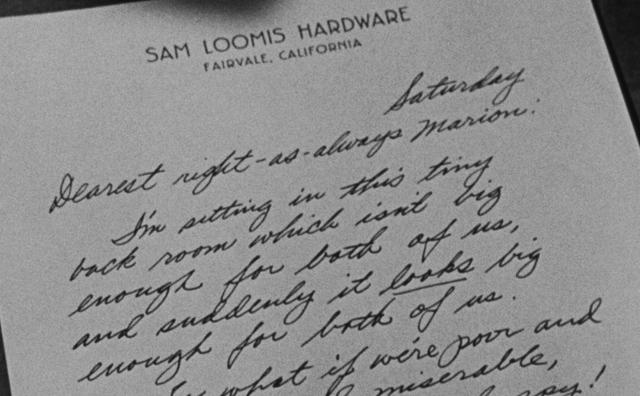 SAM LOOMIS HARDWARE
FAIRVALE, CALIFORNIA
Saturday
Dearest right-as-always Marion:
I'm sitting in this tiny
back room which isn't big
enough for both of us,
and suddenly it looks big
enough for both of us.
what if we're poor and
miserable,